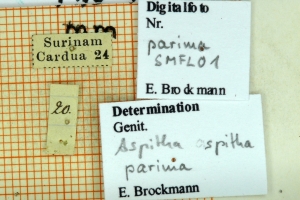 Surinam
Cardua 24
20.
Digitalfoto
Nr.
parima
SMFL01
E. Brockmann
Determination
Genit.
Aspitha aspitha
parima
E. Brockmann